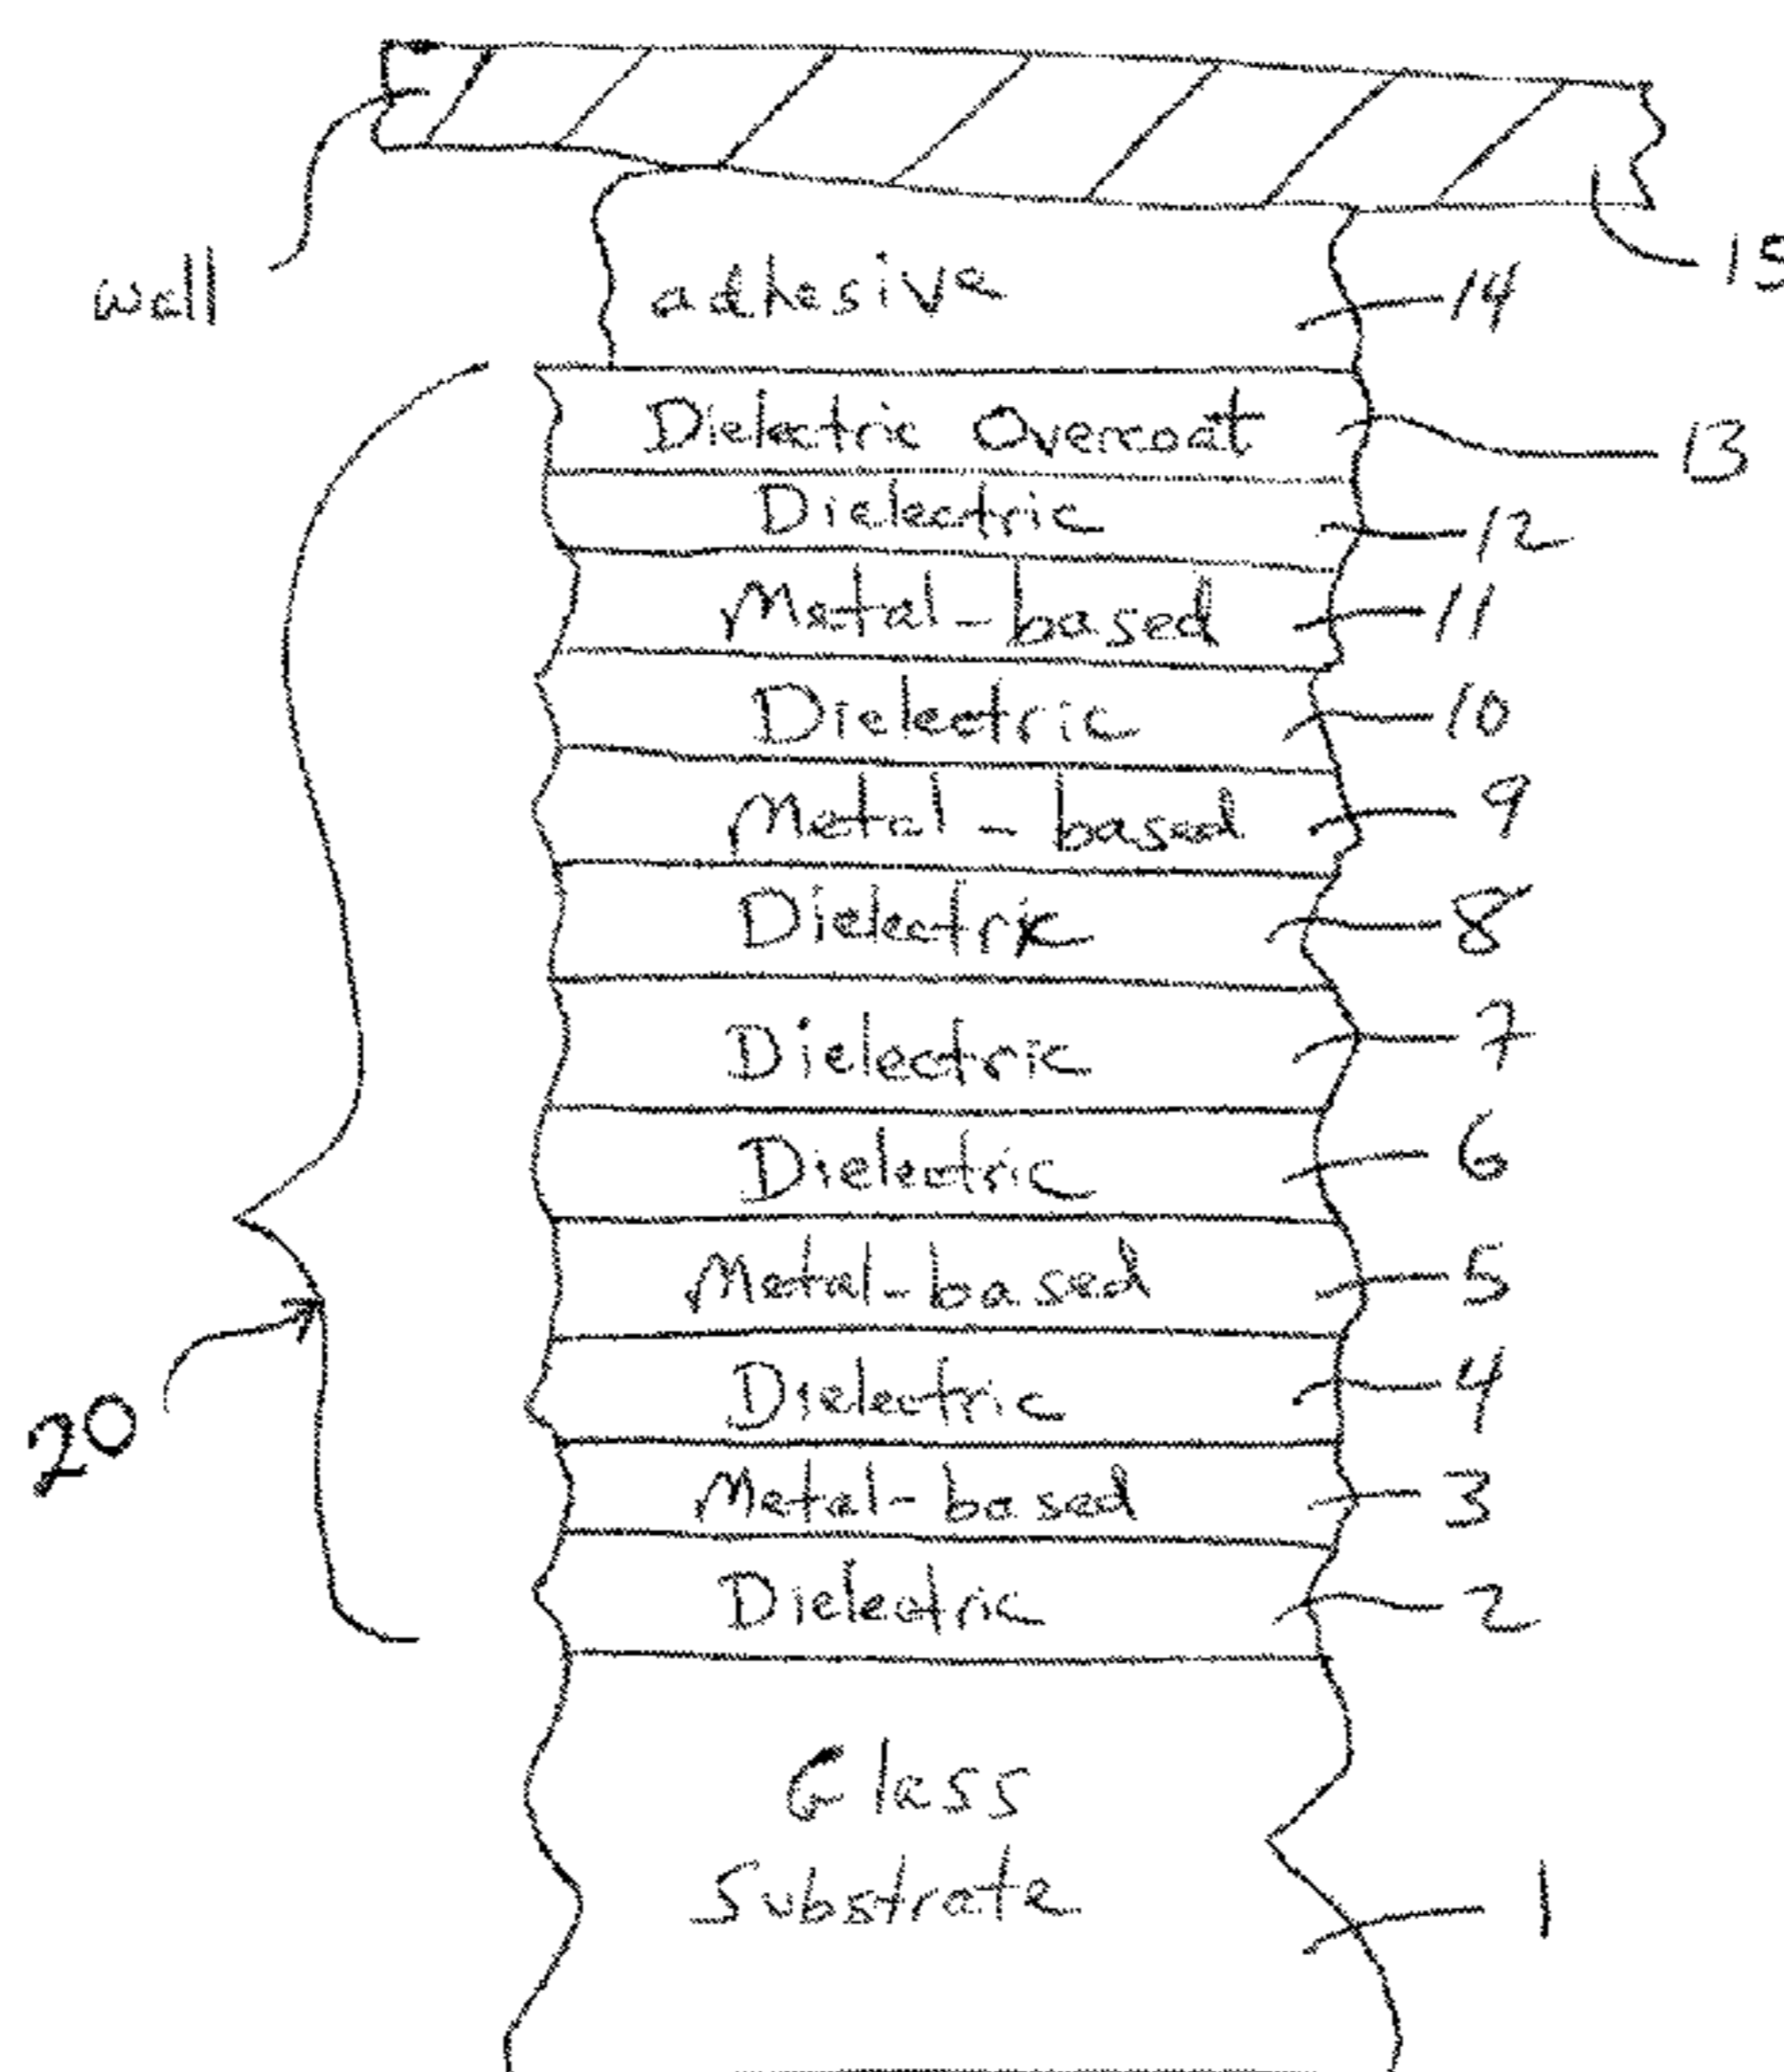 wall
15
adhesive 14
Dielectric Overcoat 13
Dielectric 12
Metal-based 11
Dielectric 10
Metal-based 9
Dielectric 8
Dielectric 7
Dielectric 6
Metal-based 5
Dielectric 4
20
Metal-based 3
Dielectric 2
Glass
Substrate 1